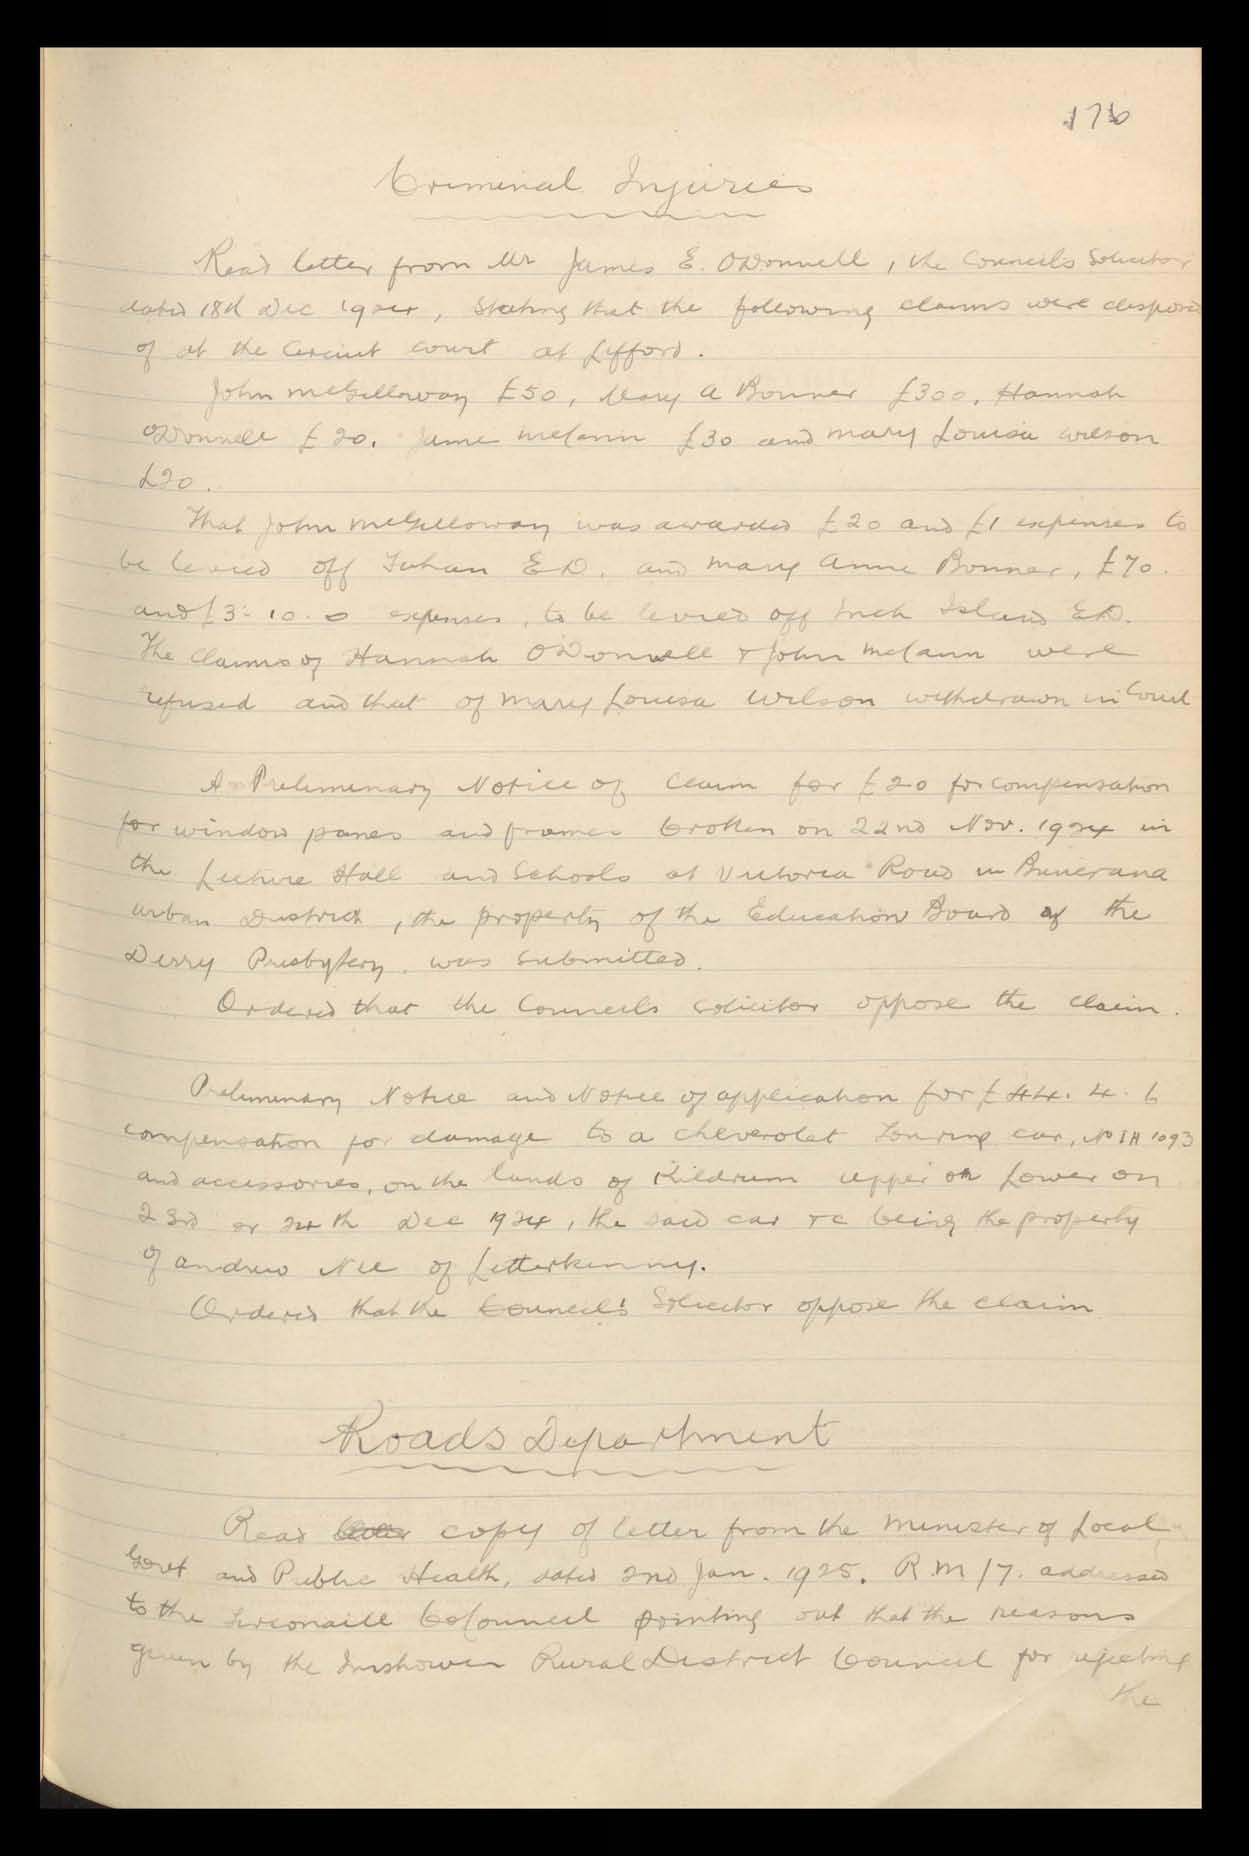 176
Criminal Injuries
Read letter from Mr James E. O'Donnell, the Councils Solicitor
dated 18th Dec 1924, Stating that the following claims were disposed
of at the Circuit Court at Lifford.
John McGilloway £50, Mary A Bonner £300, Hannah
O'Donnell £20. Jame McCann £30 and Mary Louisa Wilson
£20.
That John McGilloway was awarded £20 and £1 expenses to
be levied off Fahan E D. and Mary Anne Bonner, £70.
and £3-10-0 expenses, to be levied off Inch Island E.D.
The Claims of Hannah O'Donnell & John McCann were
refused and that of Mary Louisa Wilson withdrawn in Court
A Preliminary Notice of Claim for £20 for compensation
for window panes and frames broken on 22nd Nov. 1924 in
the Lecture Hall and Schools at Victoria Road in Buncrana
urban District, the property of the Education Board of the
Derry Presbytery. was submitted.
Ordered that the Councils solicitor oppose the claim.
Preliminary Notice and Notice of application for £44. 4. 6
compensation for damage to a cheverolet Touring car, No IH 1093
and accessories, on the lands of Kildrum upper or Lower on
23rd or 24th Dec 1924, the said car &c being the property
of andrew Nee of Letterkenny.
Ordered that the Council's Solicitor oppose the claim
Roads Department
Read copy of letter from the Minister of Local
Govt and Public Health, dated 2nd Jan. 1925. R.M/7. addressed
to the Tirconaill Co Council pointing out that the reasons
given by the Inishowen Rural District Council for rejecting
the